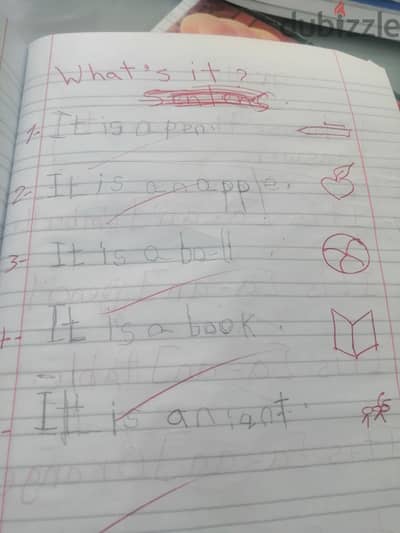 dubizzle
What's it?
1- It is a pen.
2- It is an apple.
3- It is a ball
It is a book.
It is an ant.